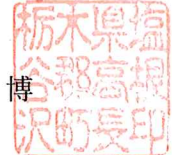 栃木県塩
谷郡高根
沢町長印
博